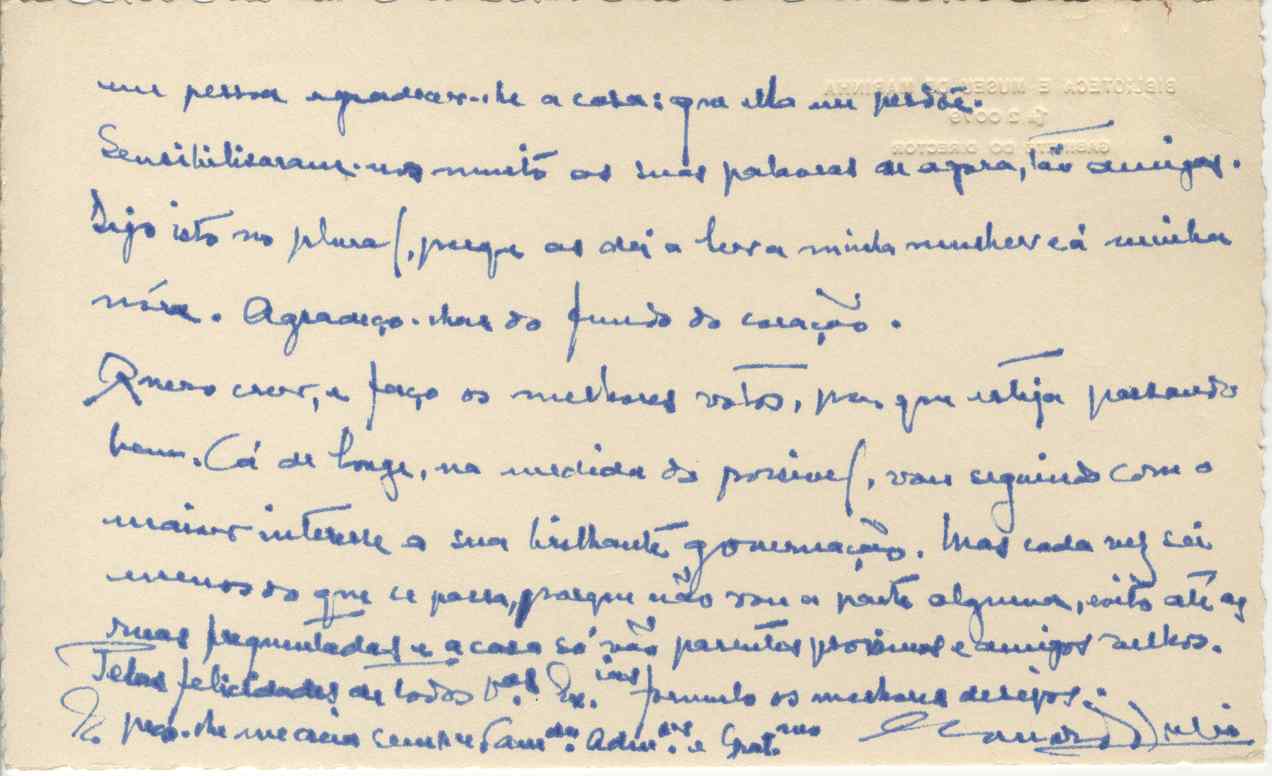 em pessoa agradecer-lhe a casa: que ella me perdôe.
Sensibilisaram-nos muito as suas palavras de agora, tão amigas.
Digo isto no plural, porque as dei a ler a minha mulher e á minha
nóra. Agradeço-lhas do fundo do coração.
Quero crer, e faço os melhores votos, para que esteja passando
bem. Cá de longe, na medida do possivel, vou seguindo com o
maior interesse a sua brilhante governação. Mas cada vez sei
menos do que se passa, porque não vou a parte alguma, evito até as
ruas frequentadas e a casa só vão parentes proximos e amigos velhos.
Pelas felicidades de todos V.as Ex.ias formulo os melhores desejos.
E peço-lhe me creia sempre Adm.or e Grat.mo
BIBLIOTECA E MUSEU DE MARINHA
GABINETE DO DIRECTOR